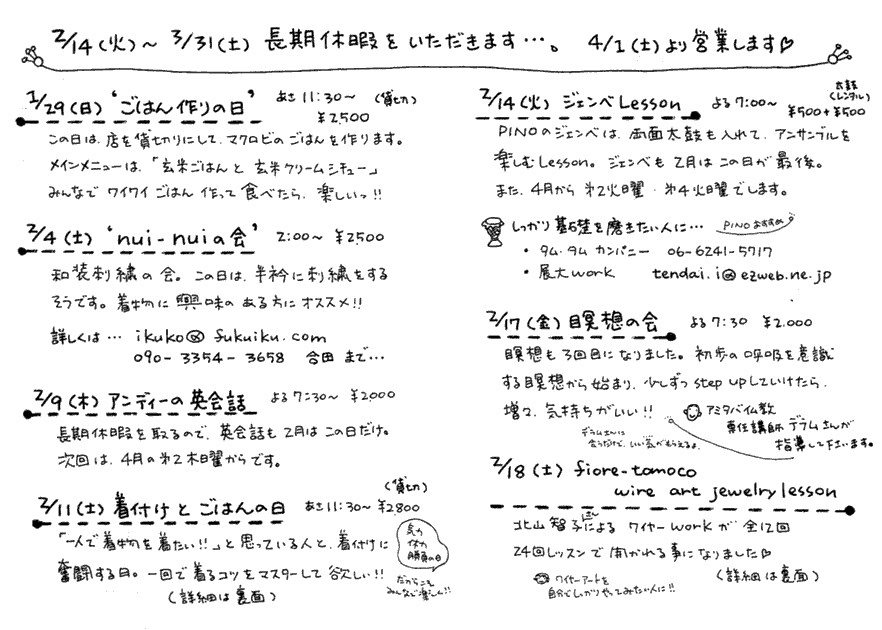 2/14(火)〜3/31(土)長期休暇をいただきます…。 4/1(土)より営業します♡
1/29(日)‘ごはん作りの日’ あさ11:30〜 (貸切)
¥2,500
この日は、店を貸切りにして、マクロビのごはんを作ります。
メインメニューは、「玄米ごはんと玄米クリームシチュー」
みんなでワイワイごはん作って食べたら、楽しいっ!!
2/4(土)‘nui-nuiの会’ 2:00〜 ¥2500
和装刺繍の会。この日は、半衿に刺繍をする
そうです。着物に興味のある方にオススメ!!
詳しくは… ikuko@fukuiku.com
090-3354-3658 合田まで…
2/9(木)アンディーの英会話 よる7:30〜 ¥2000
長期休暇を取るので、英会話も2月はこの日だけ。
次回は、4月の第2木曜からです。
2/11(土)着付けとごはんの日 あさ11:30〜 ¥2,800 (貸切)
「一人で着物を着たい!!」と思っている人と、着付けに
奮闘する日。一回で着るコツをマスターして欲しい!!
(詳細は裏面)
気力
体力
勝負の日
だからこそ
みんなで楽しく!!
2/14(火)ジェンベLesson よる7:00〜 ¥500+¥500
太鼓
(レンタル)
PINOのジェンベは、両面太鼓も入れて、アンサンブルを
楽しむLesson。ジェンベも2月はこの日が最後。
また、4月から第2火曜・第4火曜でします。
しっかり基礎を磨きたい人に… PINOおすすめ
・タム・タムカンパニー 06-6241-5717
・展大work tendai.i@ezweb.ne.jp
2/17(金)瞑想の会 よる7:30 ¥2.000
瞑想も3回目になりました。初歩の呼吸を意識
する瞑想から始まり、少しずつstep upしていけたら、
増々、気持ちがいい!!
アミタバイム教
専任講師デラムさんが
指導して下さいます。
デラムさんに
会うだけで、いい気がもらえるよ。
2/18(土)fiore-tomoco
wire art jewelry lesson
北山智子さんによるワイヤーworkが全12回
24回レッスンで開かれる事になりました♡
(詳細は裏面)
ワイヤーアートを
自分でしっかりやってみたい人に!!